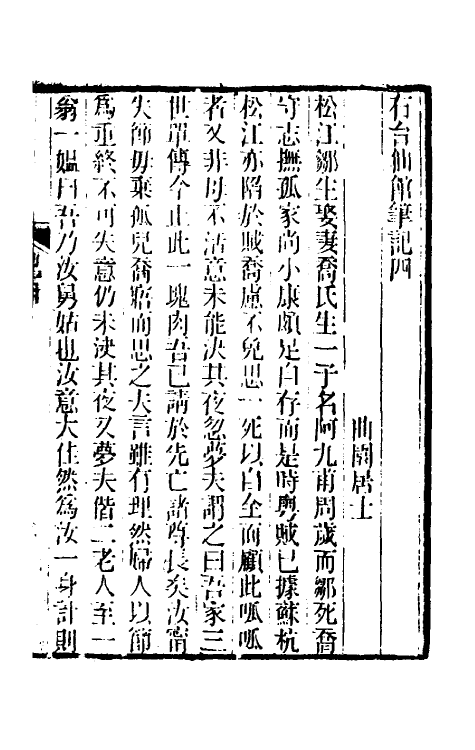 右台仙館筆記四
曲園居士
松江鄒生娶妻喬氏生一子名阿九甫周歲而鄒死喬
守志撫孤家尚小康頗足自存而是時粵賊已據蘇杭
松江亦陷於賊喬慮不免思一死以自全而顧此呱呱
者又非母不活意未能決其夜忽夢夫謂之曰吾家三
世單傳今止此一塊肉吾已請於先亡諸尊長矣汝甯
失節毋棄孤兒喬寤而思之夫言雖有理然婦人以節
爲重終不可失意仍未決其夜又夢夫偕二老人至一
翁一媼曰吾乃汝舅姑也汝意大佳然爲汝一身計則